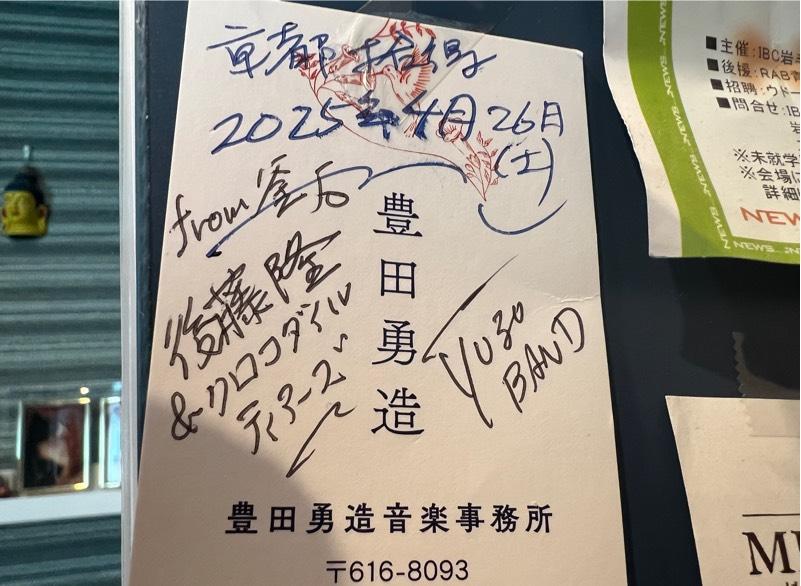 京都 拾得
2025年4月26日
(土)
from 釜石
後藤 隆
&クロコダイル
ティアーズ
豊田勇造
YUZO
BAND
豊田勇造音楽事務所
〒616-8093
■主催:IBC岩手
■後援:RAB青
■招聘:ウドー
■問合せ:IB
岩
※未就学
※会場に
詳細
NEW
NEWS
NEWS
NEWS
NEWS
NEWS
NEWS
M